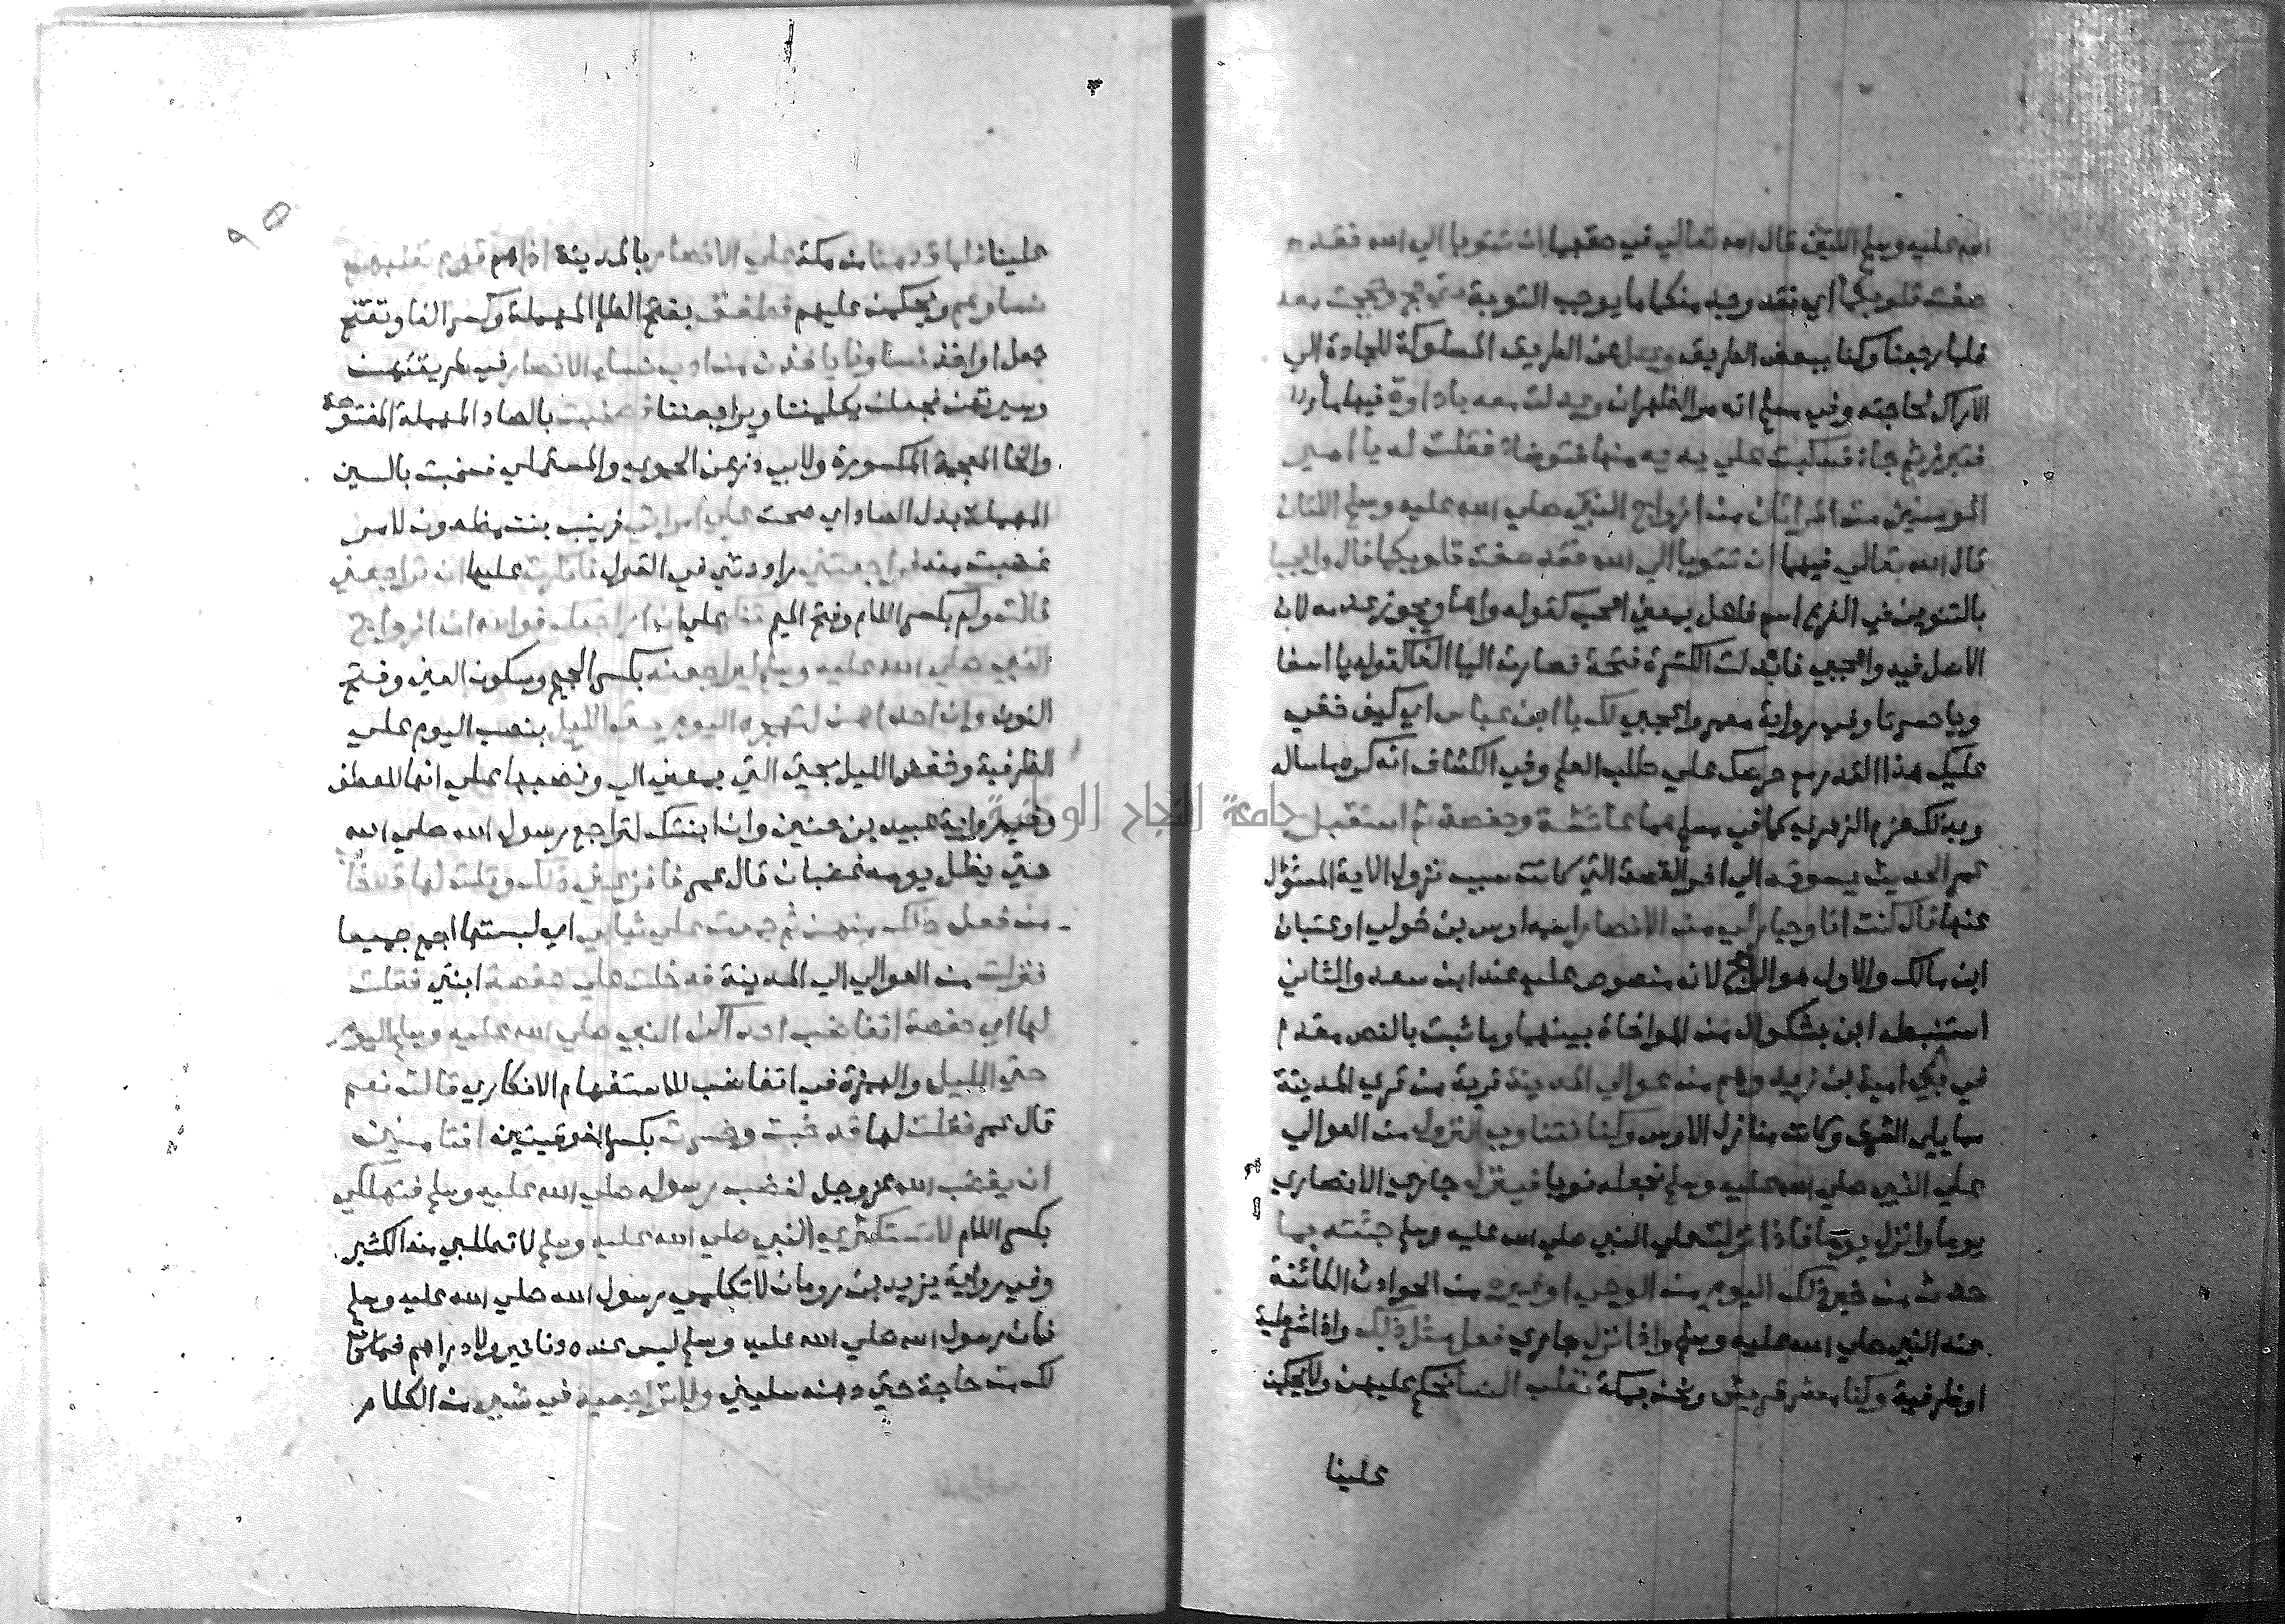 الله عليه وسلم اللتين قال الله تعالى في حقهما ان تتوبا الى الله فقد
صغت قلوبكما اي فقد وجد منكما ما يوجب التوبة حتى حج وحججت معه
فلما رجعنا وكنا ببعض الطريق وعدل عن الطريق المسلوكة للجادة الي
الاراك لحاجته وفي مسلم انه مر الظهران وعدلت معه باداوة فيها ماء
فتبرز ثم جاء فسكبت علي يديه منها فتوضا فقلت له يا امير
المومنين من المراتان من ازواج النبي صلي الله عليه وسلم اللتان
قال الله تعالي فيهما ان تتوبا الي الله فقد صغت قلوبكما قال واعجبا
بالتنوين في الفرع اسم فاعل بمعني اعجب كقوله واها ويجوز عدمه لان
الاصل فيه واعجبي فابدلت الكسرة فتحة فصارت اليا الفا كقوله يا اسفا
ويا حسرتا وفي رواية معمر واعجبي لك يا ابن عباس اي كيف خفي
عليك هذا القدر مع حرصك علي طلب العلم وفي الكشاف انه كره ما ساله
وبذلك جزم الزهري كما في مسلم هما عائشة وحفصة ثم استقبل
عمر الحديث يسوقه الي اخر القصة التي كانت سبب نزول الاية المسئول
عنها قال كنت انا وجار لي من الانصار اسمه اوس بن خولي او عتبان
ابن مالك والاول هو الراجح لانه منصوص عليه عند ابن سعد والثاني
استنبطه ابن بشكوال من المواخاة بينهما وما ثبت بالنص مقدم
في بني امية بن زيد وهم من عوالي المدينة قرية من قري المدينة
مما يلي الشرق وكانت منازل الاوس وكنا نتناوب النزول من العوالي
علي النبي صلي الله عليه وسلم نجعله نوبا فينزل جاري الانصاري
يوما وانزل يوما فاذا نزلت علي النبي صلي الله عليه وسلم جئته بما
حدث من خبر ذلك اليوم من الوحي او غيره من الحوادث الكائنة
عند النبي صلي الله عليه وسلم واذا نزل جاري فعل مثل ذلك واذا شرطية
او ظرفية وكنا معشر قريش ونحن بمكة نغلب النسا نحكم عليهن ولا يحكمن
علينا
علينا فلما قدمنا من مكة علي الانصار بالمدينة اذا هم قوم تغلبهم
نساوهم ويحكمن عليهم فطفق بفتح الطا المهملة وكسر الفا وتفتح
جعل او اخذ نساونا ياخذن من ادب نساء الانصار في طريقتهن
وسيرتهن فجعلن يكلمننا ويراجعننا فصخبت بالصاد المهملة المفتوحة
والخا المعجمة المكسورة ولابي ذر عن الحموي والمستملي فسخبت بالسين
المهملة بدل الصاد اي صحت علي امراتي زينب بنت مظعون لامر
غضبت منه فراجعتني راودتني في القول فانكرت عليها ان تراجعني
قالت ولم بكسر اللام وفتح الميم تنكر علي ان اراجعك فوالله ان ازواج
النبي صلي الله عليه وسلم ليراجعنه بكسر الجيم وسكون العين وفتح
النون وان احداهن لتهجره اليوم حتي الليل بنصب اليوم علي
الظرفية وخفض الليل بحتي التي بمعني الي ونصبها علي انها للعطف
وفي رواية عبيد بن حنين وان ابنتك لتراجع رسول الله صلي الله
حتي يظل يومه غضبان قال عمر فافزعني ذلك وقلت لها قد خاب
من فعل ذلك منهن ثم جمعت علي ثيابي اي لبستها اجمع جميعا
فنزلت من العوالي الي المدينة فدخلت علي حفصة ابنتي فقلت
لها اي حفصة اتغاضب احداكن النبي صلي الله عليه وسلم اليوم
حتي الليل والهمزة في اتغاضب للاستفهام الانكاري قالت نعم
قال عمر فقلت لها قد خبت وخسرت بكسر الفوقيتين افتامنين
ان يغضب الله عز وجل لغضب رسوله صلي الله عليه وسلم فتهلكي
بكسر اللام لا تستكثري النبي صلي الله عليه وسلم لا تطلبي منه الكثير
وفي رواية يزيد بن رومان لا تكلمي رسول الله صلي الله عليه وسلم
فان رسول الله صلي الله عليه وسلم ليس عنده دنانير ولا دراهم فما كان
لك من حاجة حتي دهنه سليني ولا تراجعيه في شيء من الكلام
جامعة النجاح الوطنية